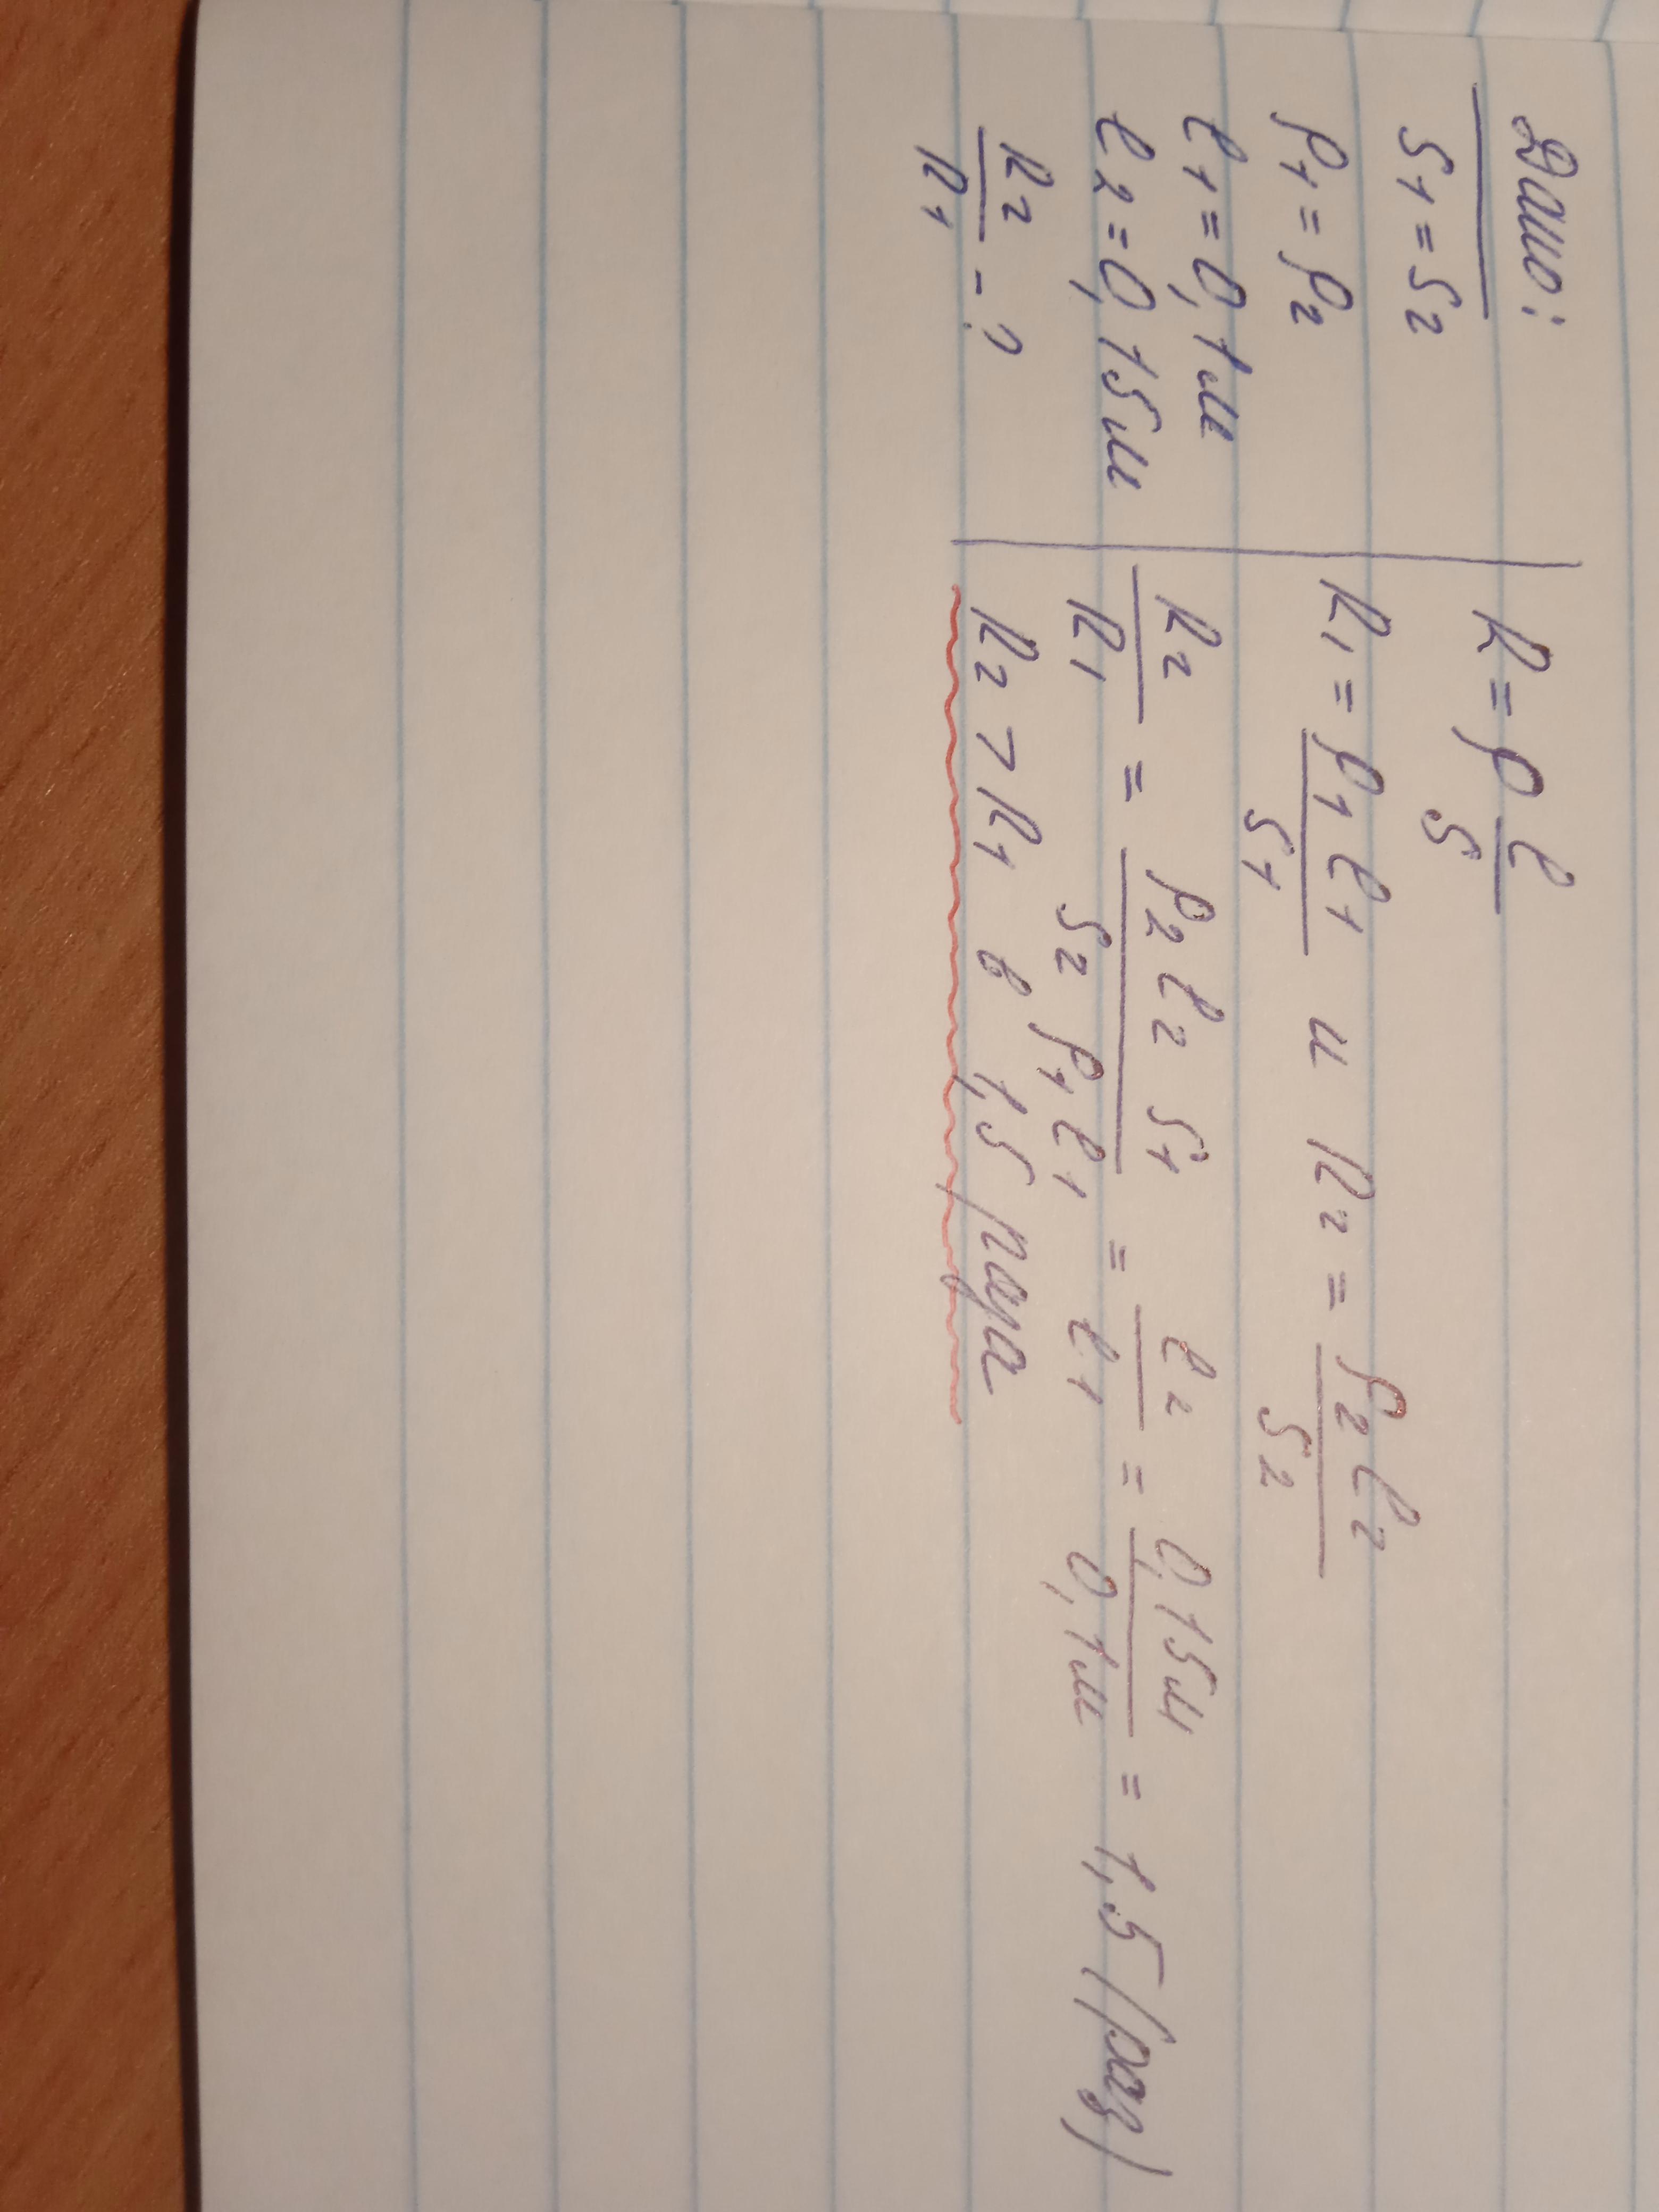 Дано:
S₁ = S₂
ρ₁ = ρ₂
l₁ = 0,1м
l₂ = 0,15м
R₂/R₁ - ?
R = ρ l/S
R₁ = ρ₁ l₁/S₁ и R₂ = ρ₂ l₂/S₂
R₂/R₁ = ρ₂ l₂ S₁/S₂ ρ₁ l₁ = l₂/l₁ = 0,15м/0,1м = 1,5 (раз)
R₂ > R₁ в 1,5 раза